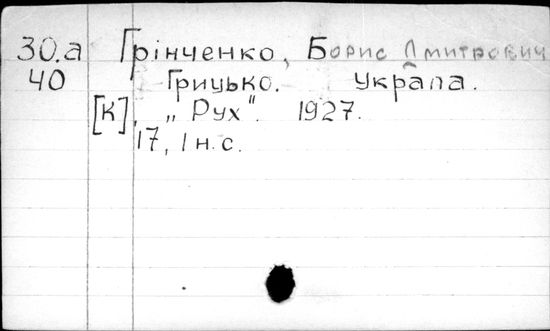 30.а Грінченко, Борис Дмитрович
40 Грицько. Украла.
[К], „Рух“. 1927.
17, 1 н. с.